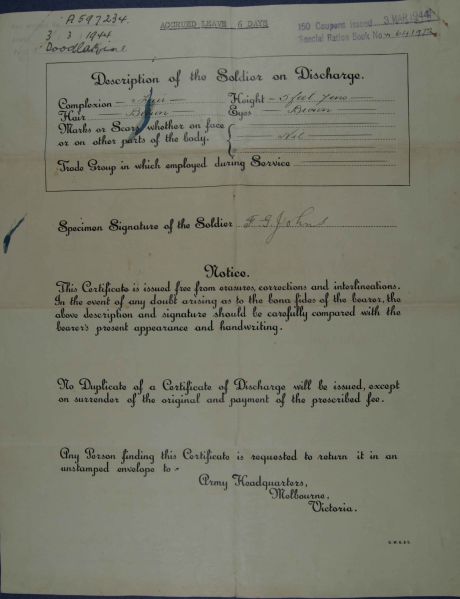 A 597234.
3/3/1944
Doodlakine
ACCRUED LEAVE 6 DAYS
150 Coupons issued 3 MAR 1944
Special Ration Book No.
Description of the Soldier on Discharge.
Complexion — Fair — Height — 5 feet
Hair — Brown — Eyes — Brown
Marks or Scars, whether on face
or on other parts of the body. Nil
Trade Group in which employed during Service
Specimen Signature of the Soldier F G Johns
Notice.
This Certificate is issued free from erasures, corrections and interlineations.
In the event of any doubt arising as to the bona fides of the bearer, the
above description and signature should be carefully compared with the
bearer's present appearance and handwriting.
No Duplicate of a Certificate of Discharge will be issued, except
on surrender of the original and payment of the prescribed fee.
Any Person finding this Certificate is requested to return it in an
unstamped envelope to -
Army Headquarters,
Melbourne,
Victoria.